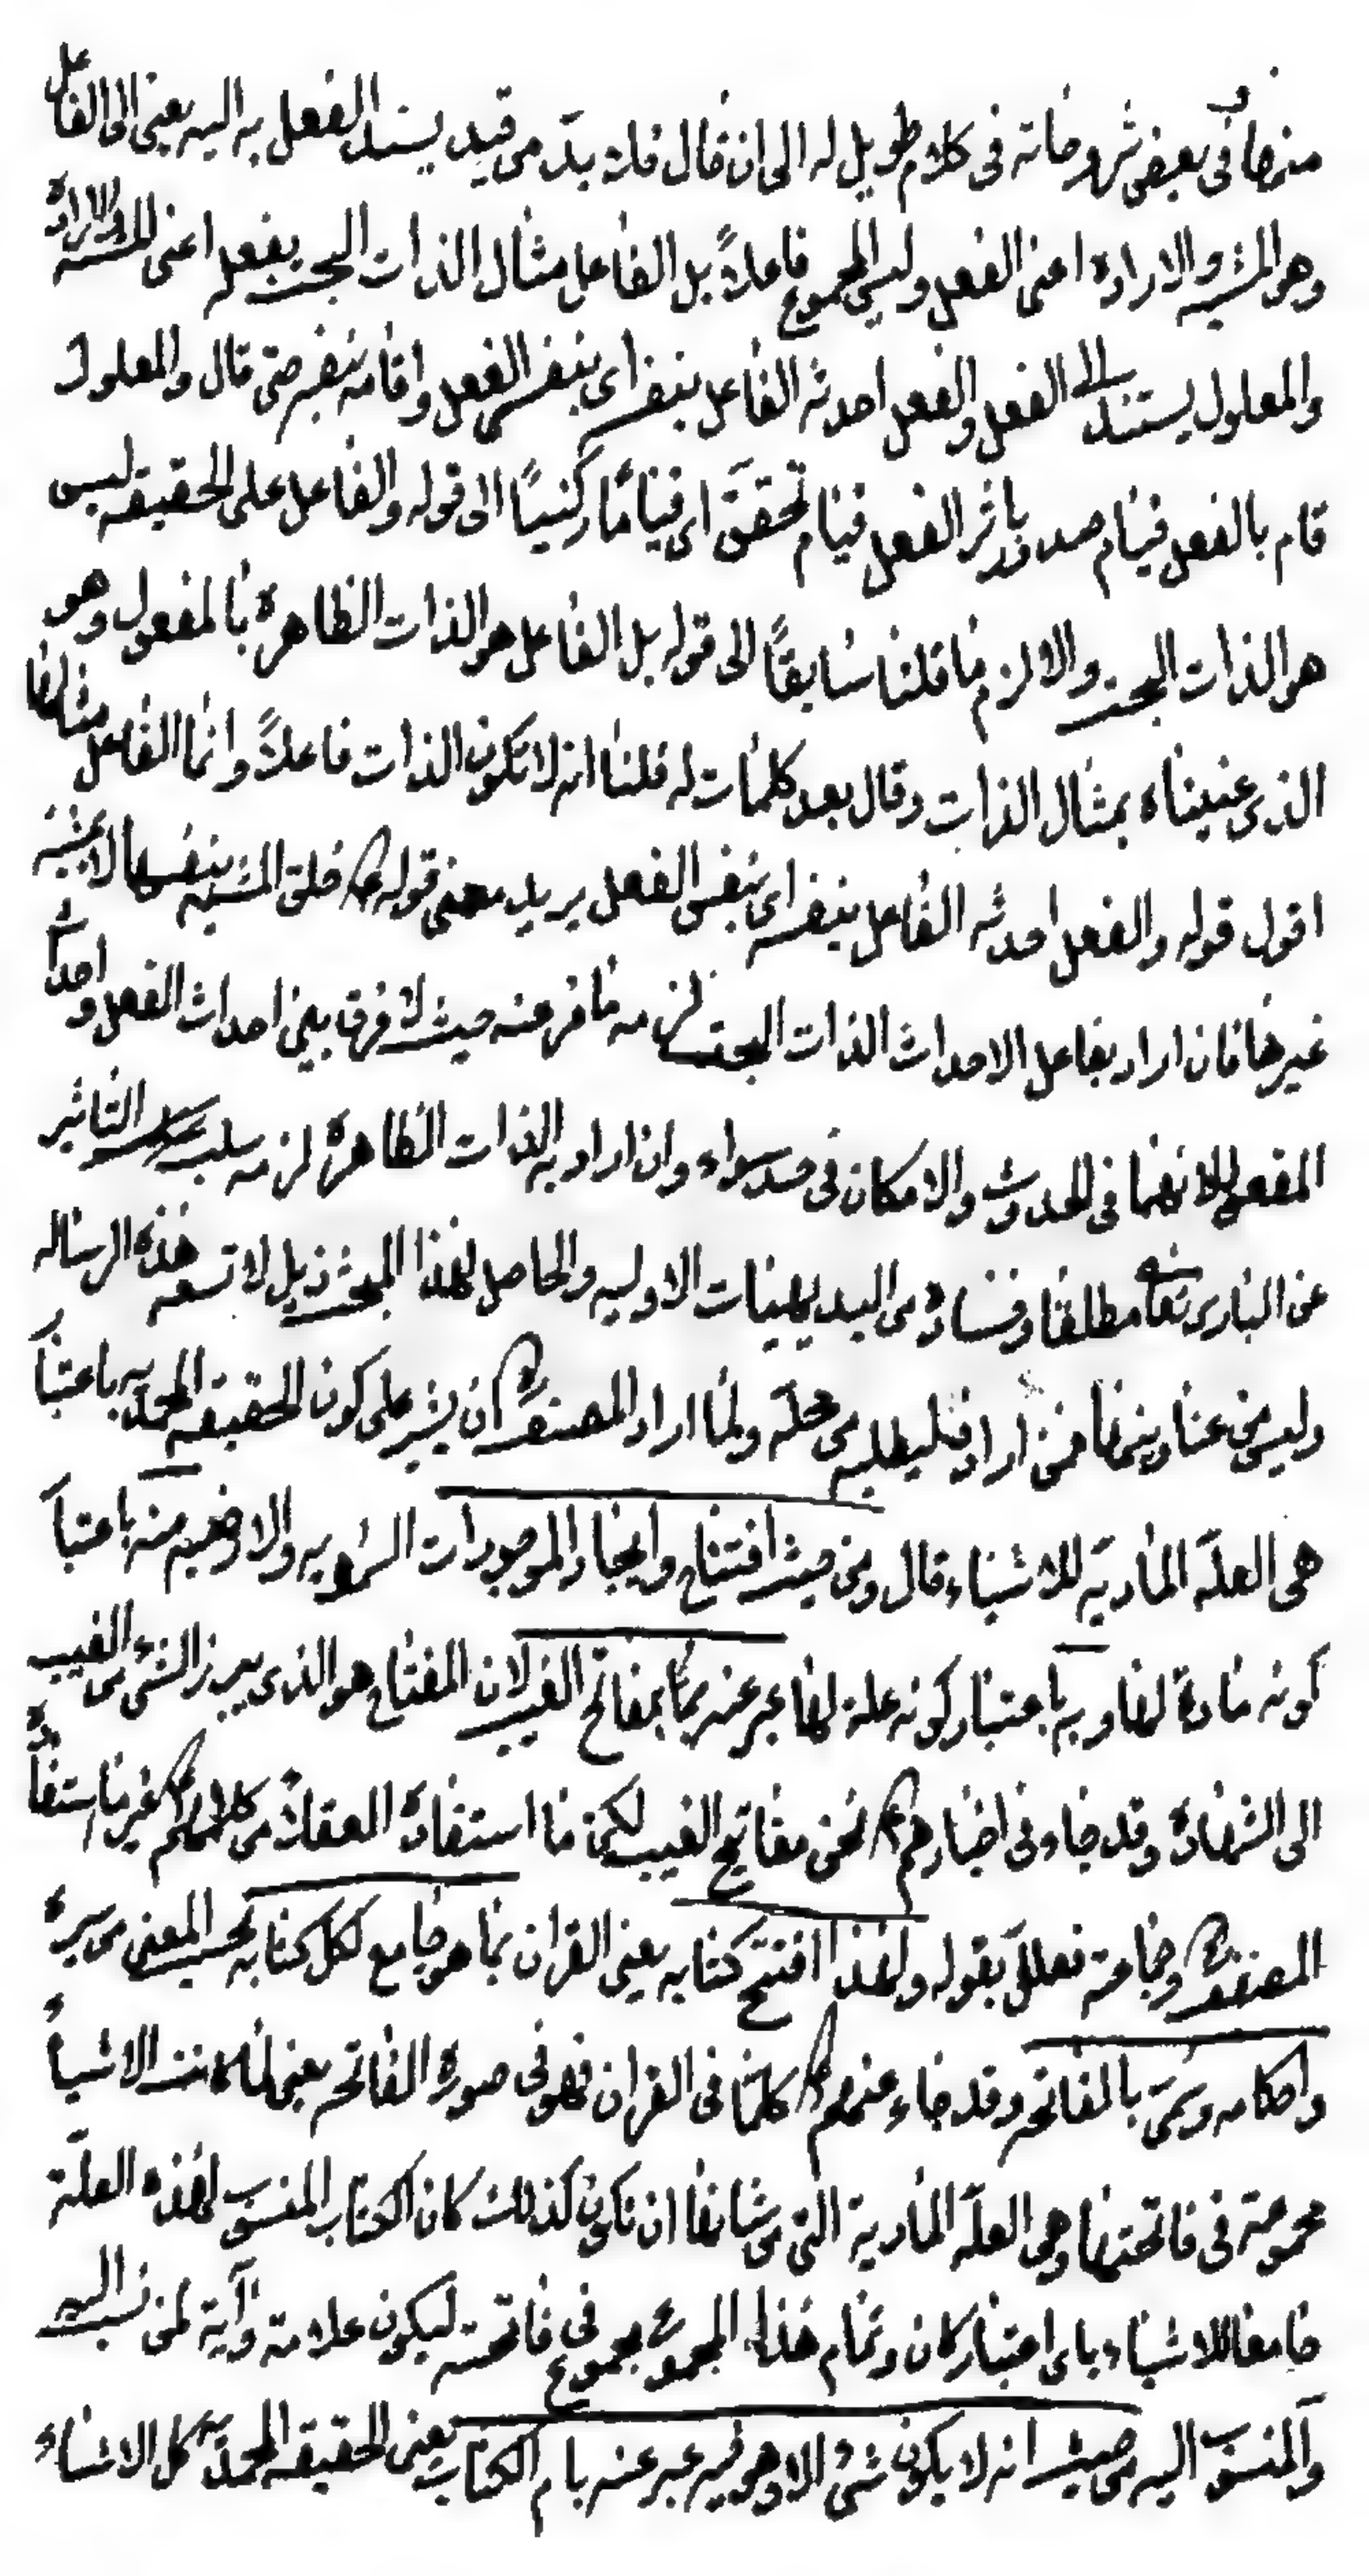 منها في بعض شروحاته في كلام طويل له الى ان قال فلا بد من قيد يسند الفعل به اليه يعني الى الفاعل
وهو المشيه والاراده اعني الفعل وليس المجموع فاعلاً بل الفاعل مثال الذات البحت بفعله اعني المشيه والارادة
والمعلول يستند الى الفعل والفعل احدثه الفاعل بنفسه اى بنفس الفعل واقامه بنفسه حتى قال والمعلول
قام بالفعل قيام صدور وباثر الفعل قيام تحقق اى قياماً ركنياً الى قوله والفاعل على الحقيقه ليس
هو الذات البحت والا لزم ما قلنا سابقاً الى قوله بل الفاعل هو الذات الظاهرة بالمفعول وهو
الذى عنيناه بمثال الذات وقال بعد كلمات له قلنا انه لا تكون الذات فاعلاً وانما الفاعل مثالها
اقول قوله والفعل احدثه الفاعل بنفسه اى بنفس الفعل يريد معنى قوله ع خلق المشيه بنفسها لا بمشيه
غيرها فان اراد بفاعل الاحداث الذات البحت لزمه ما فر عنه حيث لا فرق بين احداث الفعل واحداث
المفعول لانهما في الحدوث والامكان في حد سواء وان اراد به الذات الظاهرة لزمه سلب التاثير
عن البارى تعالى مطلقا وفساده من البديهيات الاوليه والحاصل لهذا المبحث ذيل لا تسعه هذه الرساله
وليس من عنادينها فمن اراد فليطلبه من محله ولما اراد المصنف ان يشير على كون الحقيقه المحمديه باعتبار
هى العلة المادية للاشياء قال ومن حيث افتتاح وايجاد الموجودات السمويه والارضيه منه باعتبار
كونه مادة لها وبه باعتبار كونه علة لها عبر عنه بمفاتح الغيب لان المفتاح هو الذى يبرز الشئ من الغيب
الى الشهادة وقد جاء في اخبارهم ع نحن مفاتيح الغيب لكن ما استفاده العقلاء من كلامهم ع غير ما استفاده
المصنف وجماعته فعلل بقوله ولهذا افتتح كتابه يعني القران بما هو جامع لكل كتابه بحسب المعنى من سيره
واحكامه وسمى بالفاتحه وقد جاء عنهم ع كلما في القران فهو في سورة الفاتحه يعني لما كانت الاشياء
مجموعة في فاتحتها وهى العلة المادية التى من شانها ان تكون كذلك كان الكتاب المنسوب لهذه العلة
جامعا للاشياء باى اعتبار كان وتمام هذا المجموع مجموع في فاتحته ليكون علامة وآية لمن نسب اليه
والمنسوب اليه من حيث انه لا يكون شئ الا وهو فيه عبر عنه بام الكتاب يعني الحقيقه المحمديه كل الاشياء